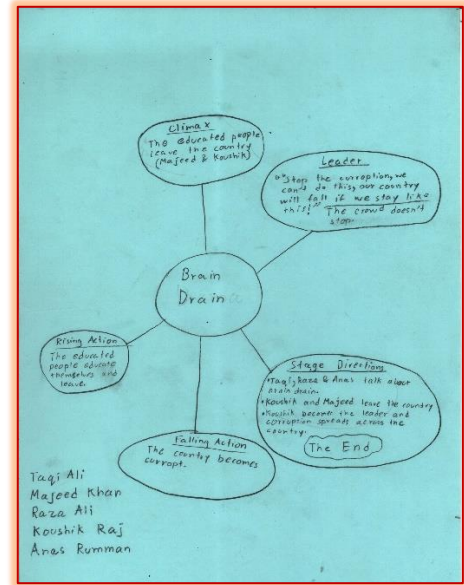 Climax
The educated people
leave the country
(Majeed & Koushik)
Leader
"Stop the corruption, we
can't do this, our country
will fall if we stay like
this!" The crowd doesn't
stop.
Brain
Drain
Rising Action
The educated
people educate
themselves and
leave.
Falling Action
The country becomes
corropt.
Stage Directions
•Taqi, Raza & Anas talk about
brain drain.
•Koushik and Majeed leave the country
•Koushik becomes the leader and
corruption spreads across the
country.
The End
Taqi Ali
Majeed Khan
Raza Ali
Koushik Raj
Anas Rumman